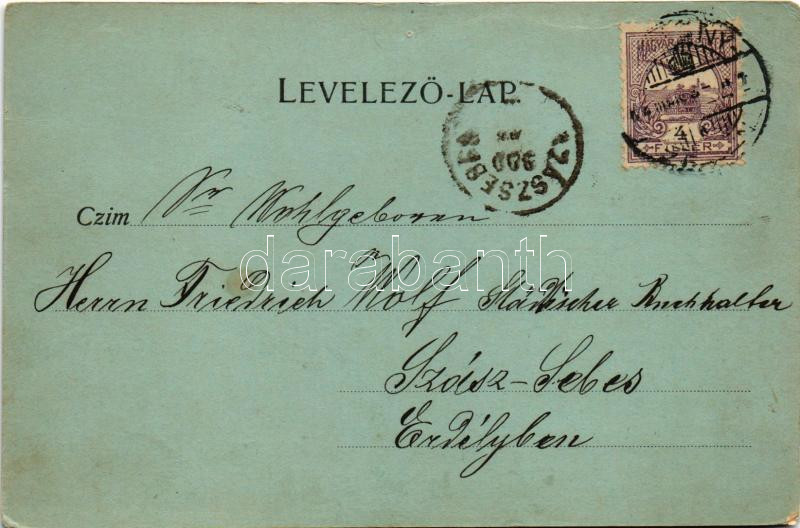 LEVELEZŐ-LAP.
MAGYAR
4
FILLÉR
SZÁSZSEBES
900
Czim Sr Wohlgeboren
darabanth
Herrn Friedrich Wolf Städtischer Buchhalter
Szász-Sebes
Erdélyben